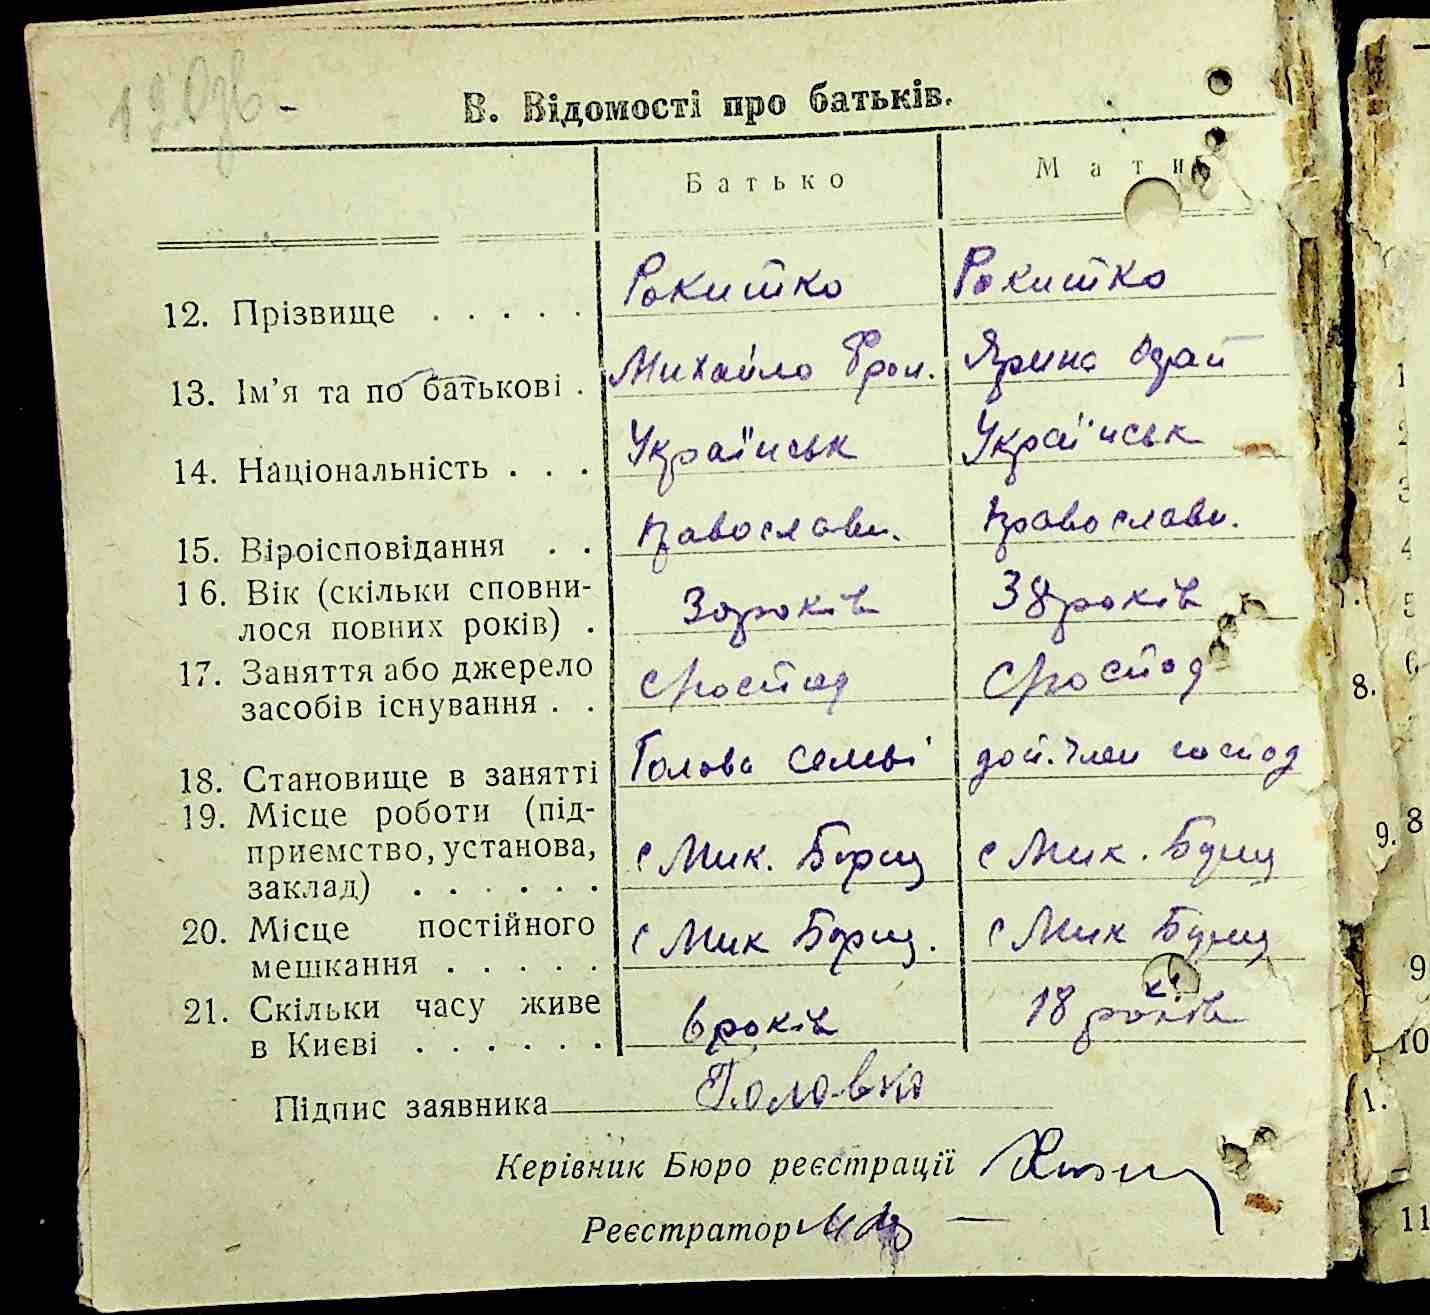 В. Відомості про батьків.
Батько Мати
12. Прізвище . . . . . Рокитко Рокитко
13. Ім'я та по батькові . Михайло Фрол. Ярина
14. Національність . . . Українськ Українськ
15. Віроісповідання . . павославн. православн.
16. Вік (скільки сповни-
лося повних років) . років 38 років
17. Заняття або джерело
засобів існування . . госпід господ
18. Становище в занятті Голова семьі доп. член господ
19. Місце роботи (під-
приємство, установа,
заклад) . . . . . . с Мик. Борщ с Мик. Борщ
20. Місце постійного
мешкання . . . . . с Мик Борщ. с Мик Борщ
21. Скільки часу живе
в Києві . . . . . . 6 років 18 років
Підпис заявника Головко
Керівник Бюро реєстрації
Реєстратор